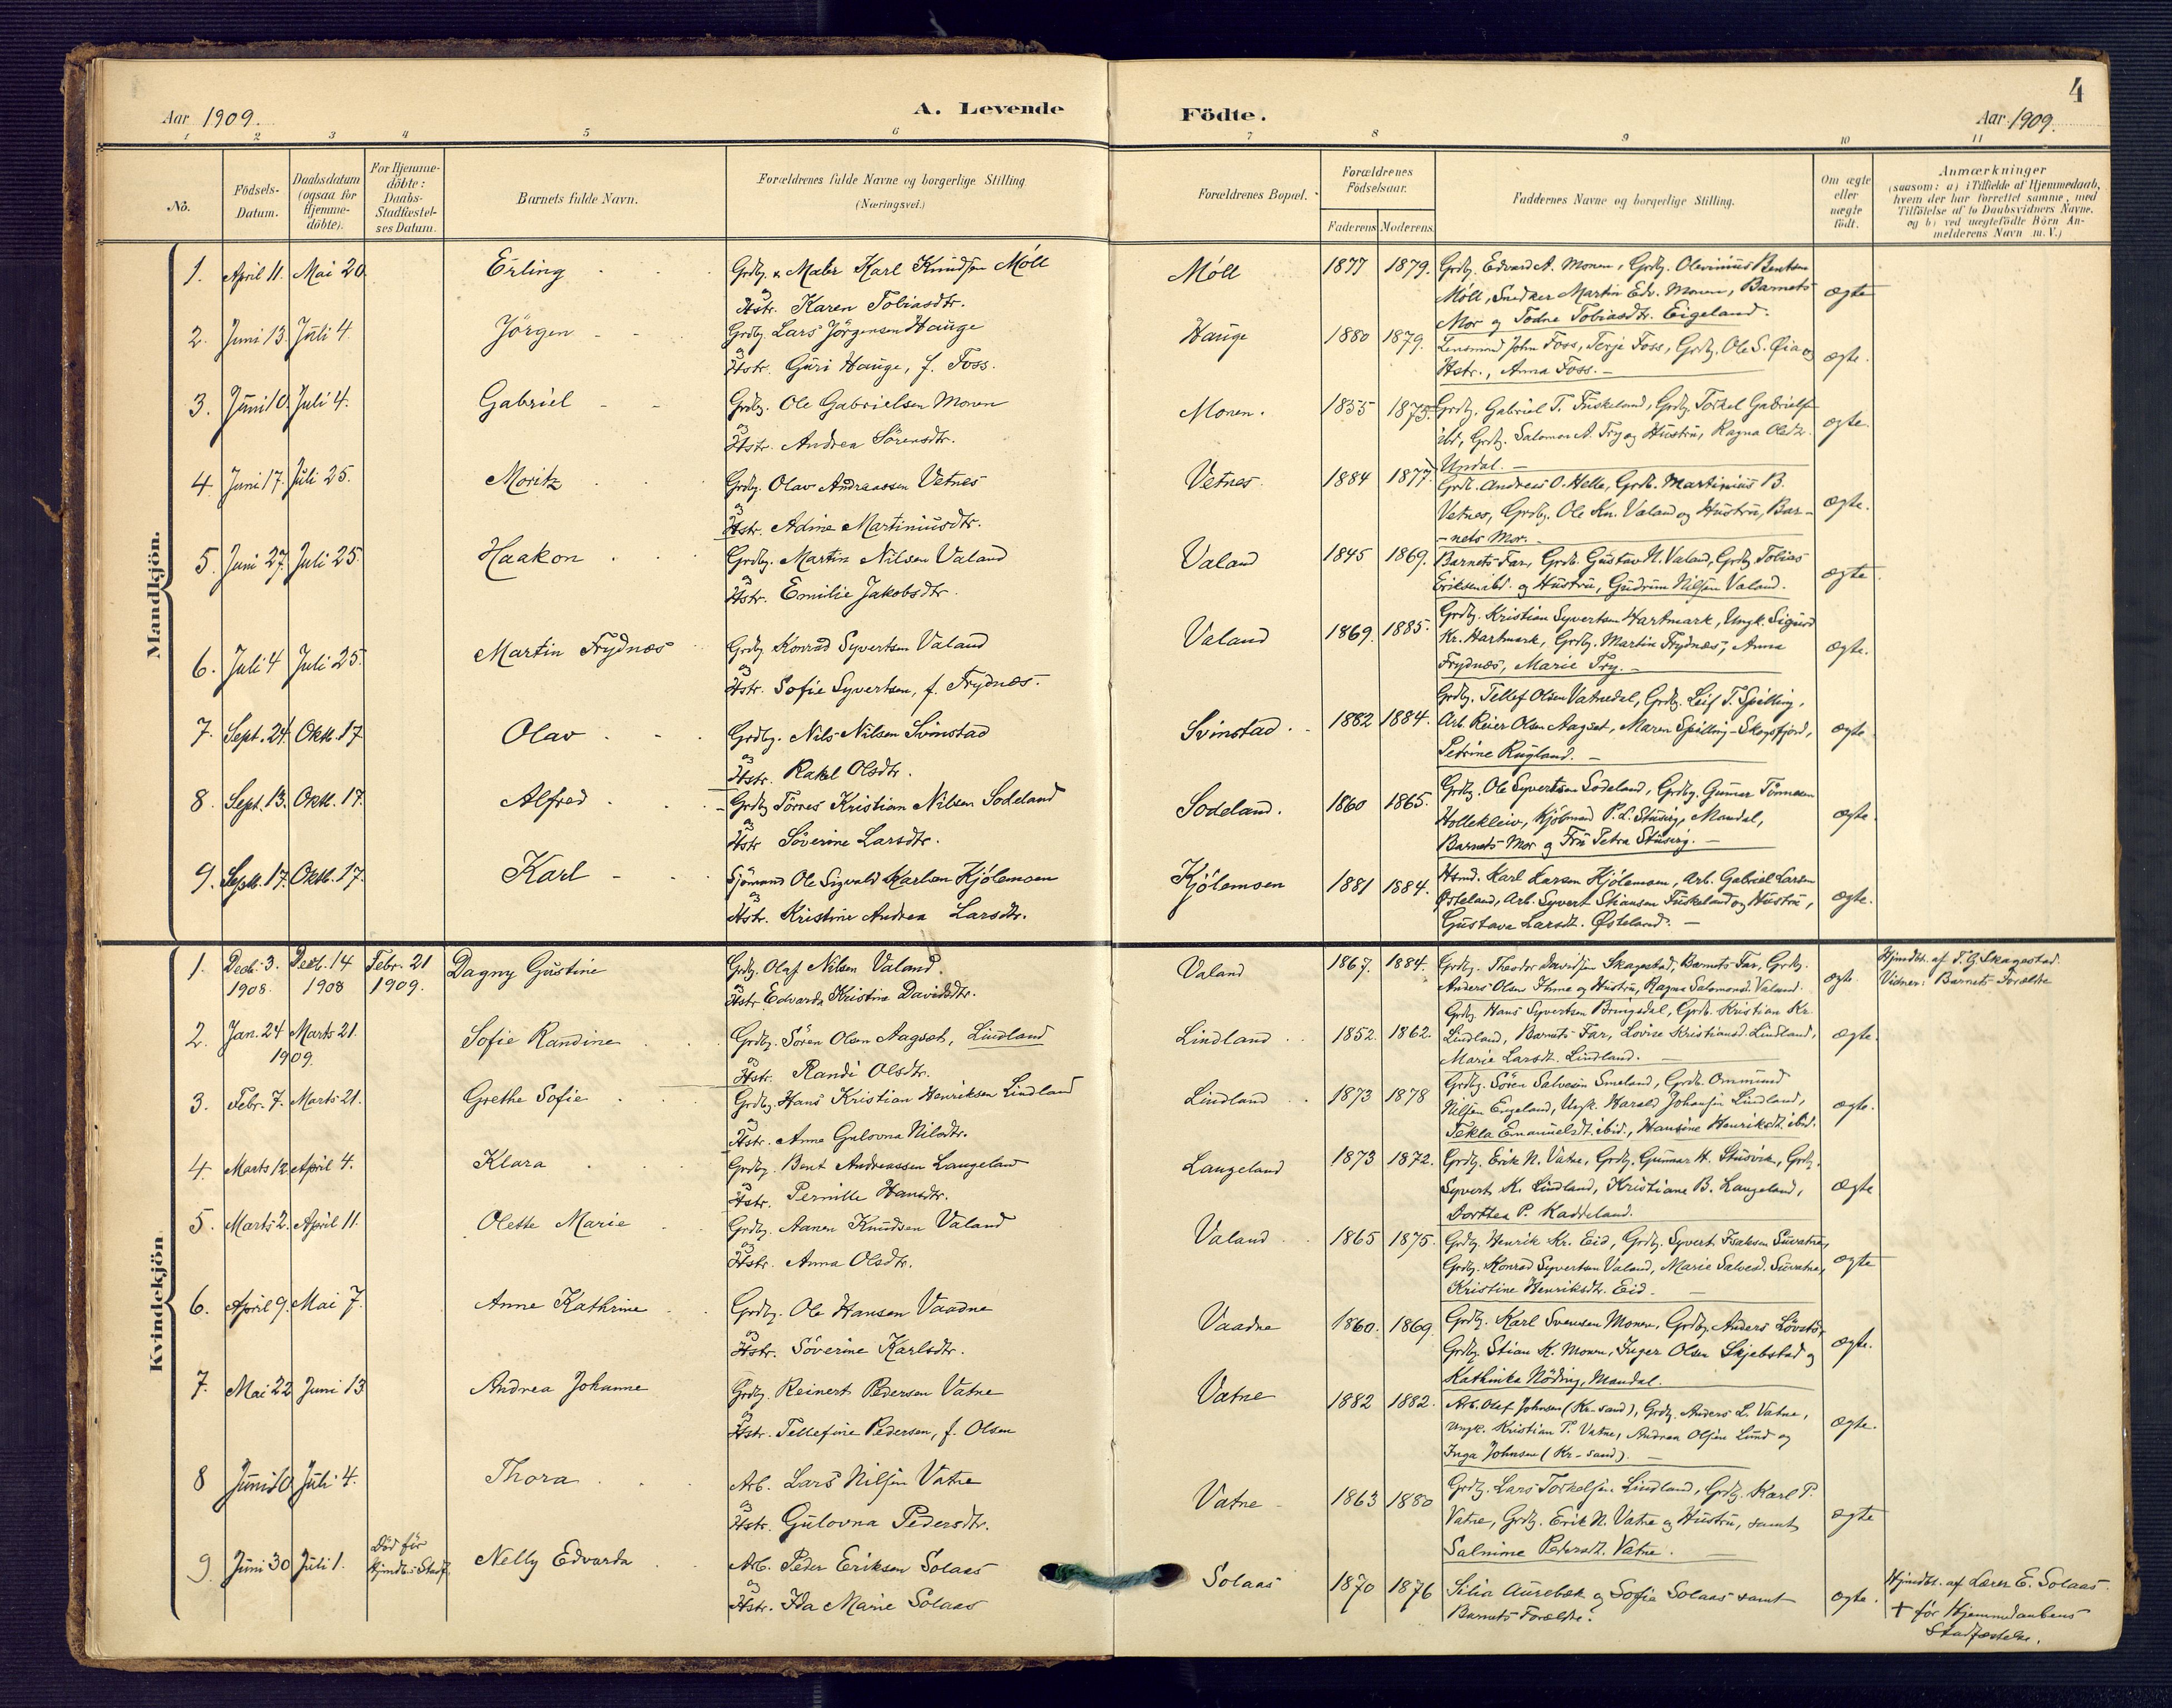 4
Aar 1909.
A. Levende Födte.
Aar 1909.
1 2 3 4 5 6 7 8 9 10 11
No.
Födsels-Datum.
Daabsdatum (ogsaa for Hjemme-döbte).
For Hjemme-döbte: Daabs-Stadfæstel-ses Datum.
Barnets fulde Navn.
Forældrenes fulde Navne og borgerlige Stilling (Næringsvei.)
Forældrenes Bopæl.
Forældrenes Födselsaar.
Faderens Moderens.
Faddernes Navne og borgerlige Stilling.
Om ægte eller uægte födt.
Anmærkninger
(saasom: a) i Tilfælde af Hjemmedaab,
hvem der har forrettet samme, med
Tilföielse af to Daabsvidners Navne.
og b) ved uægtefödte Börn An-
melderens Navn m. V.)
Mandkjön.
1. April 11. Mai 20. Erling Grdbg. & Maler Karl Knudsen Möll
og Hstr. Karen Tobiasdtr.
Möll 1877 1879. Grdbg. Edvard A. Monen, Grdbg. Olevinius Bentsen
Möll, Snedker Martin Edv. Monen, Barnets
Mor og Todne Tobiasdtr. Eigeland.
ægte
2. Juni 13. Juli 4. Jörgen Grdbg. Lars Jörgensen Hauge
og Hstr. Guri Hauge, f. Foss.
Hauge 1880 1879. Lensmand John Foss, Terje Foss, Grdbg. Ole S. Øia og
Hstr., Anna Foss.
ægte.
3. Juni 10. Juli 4. Gabriel Grdbg. Ole Gabrielsen Monen
og Hstr. Andrea Sörensdtr.
Monen. 1855 1875. Grdbg. Gabriel T. Fuskeland, Grdbg. Torkel Gabrielsen
ibd, Grdbg. Salomon A. Try og Hustru, Ragna Olsdtr.
Undal.
ægte.
4. Juni 17. Juli 25. Moritz Grdbg. Olav Andreassen Vetnes
og Hstr. Adine Martiniusdtr.
Vetnes 1884 1877. Grdb. Andreas O. Helle, Grdb. Martinius B.
Vetnes, Grdbg. Ole Kn. Valand og Hustru, Bar-
-nets Mor.
ægte.
5. Juni 27. Juli 25. Haakon Grdbg. Martin Nilsen Valand
og Hstr. Emilie Jakobsdtr.
Valand 1845 1869. Barnets Far, Grdb. Gustav N. Valand, Grdbg Tobias
Eriksen ibd. og Hustru, Gudrun Nilsen Valand.
ægte
6. Juli 4 Juli 25. Martin Frydnes Grdbg Konrad Syvertsen Valand
og Hstr. Sofie Syvertsen, f. Frydnes.
Valand 1869. 1885. Grdbg. Kristian Syvertsen Hartmark, Ungk. Sigurd
Kr. Hartmark, Grdbg. Martin Frydnæs, Anna
Frydnæs, Marie Try.
ægte.
7. Sept. 24. Oktb. 17 Olav Grdbg. Nils Nilsen Svinstad
og Hstr. Rakel Olsdtr.
Svinstad. 1882 1884. Grdbg. Tellef Olsen Vatnedal, Grdbg. Leif T. Spilling,
Arb. Reier Olsen Aagset, Maren Spilling-Skogsfjord,
Petrine Rugland.
ægte
8. Sept. 13. Oktb. 17. Alfred Grdbg Törres Kristian Nilsen Sodeland
og Hstr Söverine Larsdtr.
Sodeland. 1860 1865. Grdbg. Ole Syvertsen Sodeland, Grdbg. Gunnar Tönnesen
Hollekleiv, Kjöbmand P. L. Stusvig, Mandal,
Barnets Mor og Fru Petra Stusvig.
ægte.
9. Septb. 17. Oktb. 17. Karl Sjömand Ole Sigvald Karlsen Kjölemoen
og Hstr. Kristine Andrea Larsdtr.
Kjölemoen 1881 1884. Hsmd. Karl Larsen Kjölemoen, Arb. Gabriel Larsen
Østeland, Arb. Syvert Stiansen Fuskeland og Hustru,
Gustava Larsdt. Østeland.
ægte.
Kvindekjön.
1. Decb. 3. 1908. Decb. 14 1908 Febr. 21 1909. Dagny Gustine Grdbg. Olaf Nilsen Valand.
og Hstr Edvarda Kristine Davidsdtr.
Valand 1867. 1884. Grdbg. Theodor Davidsen Skagestad, Barnets Far, Grdbg.
Anders Olsen Ihme og Hustru, Ragna Salomonsd. Valand.
ægte
Hjmdbt. af T. G. Skagestad.
Vidner: Barnets Forældre
2. Jan. 24 Marts 21. 1909. Sofie Randine Grdbg. Sören Olsen Aagset, Lindland
og Hstr. Randi Olsdtr.
Lindland 1852. 1862. Grdbg Hans Syvertsen Bringsdal, Grdb. Kristian Kr.
Lindland, Barnets Far, Lovise Kristiansd. Lindland,
Marie Larsdt. Lindland.
ægte.
3. Febr. 7. Marts 21. Grethe Sofie Grdbg Hans Kristian Henriksen Lindland
og Hstr. Anne Gulovna Nilsdtr.
Lindland 1873 1878 Grdbg. Sören Salvesen Smeland, Grdb. Ommund
Nilsen Engeland, Ungk. Harald Johansen Lindland,
Tekla Emanuelsdt. ibid., Hansine Henriksdt. ibid.
ægte.
4. Marts 12 April 4. Klara Grdbg. Bent Andreassen Langeland
og Hstr. Pernille Hansdtr.
Langeland 1873 1872. Grdbg. Erik N. Vatne, Grdbg. Gunnar H. Stusvik, Grdbg.
Syvert K. Lindland, Kristiane B. Langeland,
Dorthea P. Kaddeland.
ægte
5. Marts 2. April 11. Olette Marie Grdbg. Aanen Knudsen Valand
og Hstr. Anna Olsdtr.
Valand 1865 1875. Grdbg Henrik Kr. Eid, Grdbg. Syvert Isaksen Suvatne,
Grdbg. Konrad Syvertsen Valand, Marie Salvesd. Suvatne,
Kristine Henriksdtr. Eid.
ægte
6. April 9. Mai 7. Anne Kathrine Grdbg. Ole Hansen Vaadne
og Hstr. Söverine Karlsdtr.
Vaadne 1860. 1869. Grdbg. Karl Svensen Monen, Grdbg Anders
Grdbg Stian K. Monen, Inger Olsen Skjebstad og
Kathinka Nöding, Mandal.
ægte.
7. Mai 22 Juni 13 Andrea Johanne Grdbg. Reinert Pedersen Vatne
og Hstr. Tellefine Pedersen, f. Olsen
Vatne 1882 1882. Arb. Olaf Johnsen (Kr.sand), Grdbg. Anders L. Vatne,
Ungk. Kristian P. Vatne, Andrea Olsen Lund og
Inga Johnsen (Kr-sand).
ægte.
8 Juni 10 Juli 4. Thora Arb. Lars Nilsen Vatne
og Hstr. Gulovna Pedersdtr.
Vatne 1863 1880 Grdbg. Lars Torkelsen Lindland, Grdbg. Karl P.
Vatne, Grdbg. Erik N. Vatne og Hustru, samt
Salmine Pedersdt. Vatne.
ægte
9. Juni 30 Juli 1. Död för Hjmdb.s Stadf. Nelly Edvarda Arb. Peder Eriksen Solaas
og Hstr. Ida Marie Solaas
Solaas 1870 1876 Silia Aurebek og Sofie Solaas samt
Barnets Forældre.
ægte.
Hjmdbt. af Lærer E. Solaas.
+ för Hjemmedaabens
Stadfæstelse.